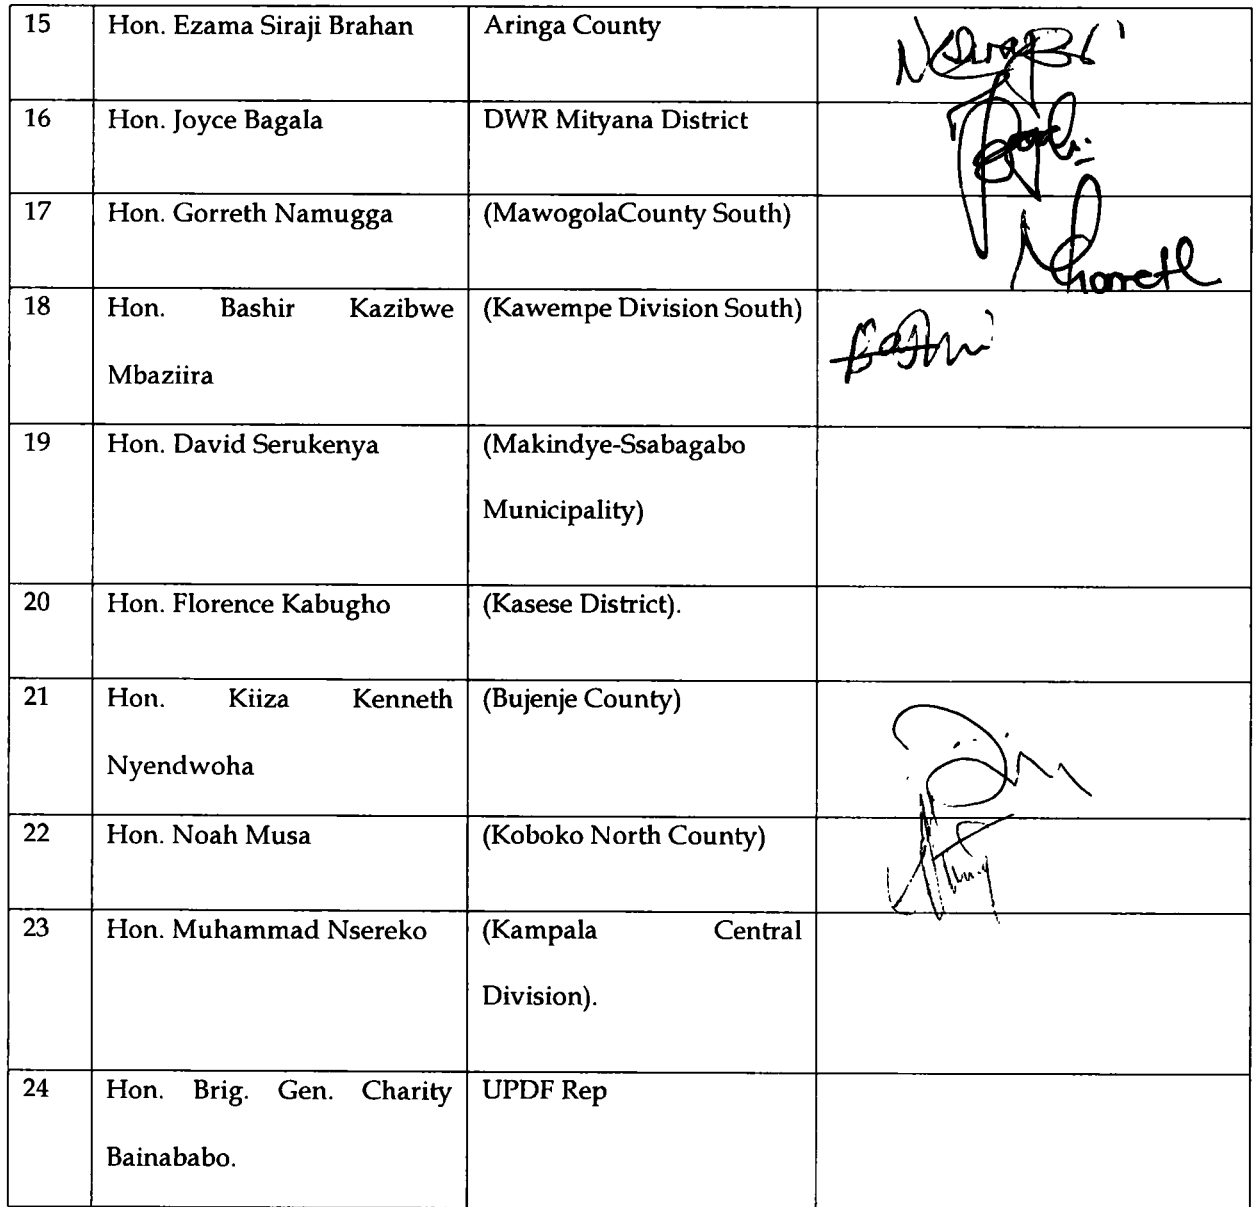 15 Hon. Ezama Siraji Brahan Aringa County
16 Hon. Joyce Bagala DWR Mityana District
17 Hon. Gorreth Namugga (MawogolaCounty South)
18 Hon. Bashir Kazibwe (Kawempe Division South)
Mbaziira
19 Hon. David Serukenya (Makindye-Ssabagabo
Municipality)
20 Hon. Florence Kabugho (Kasese District).
21 Hon. Kiiza Kenneth (Bujenje County)
Nyendwoha
22 Hon. Noah Musa (Koboko North County)
23 Hon. Muhammad Nsereko (Kampala Central
Division).
24 Hon. Brig. Gen. Charity UPDF Rep
Bainababo.